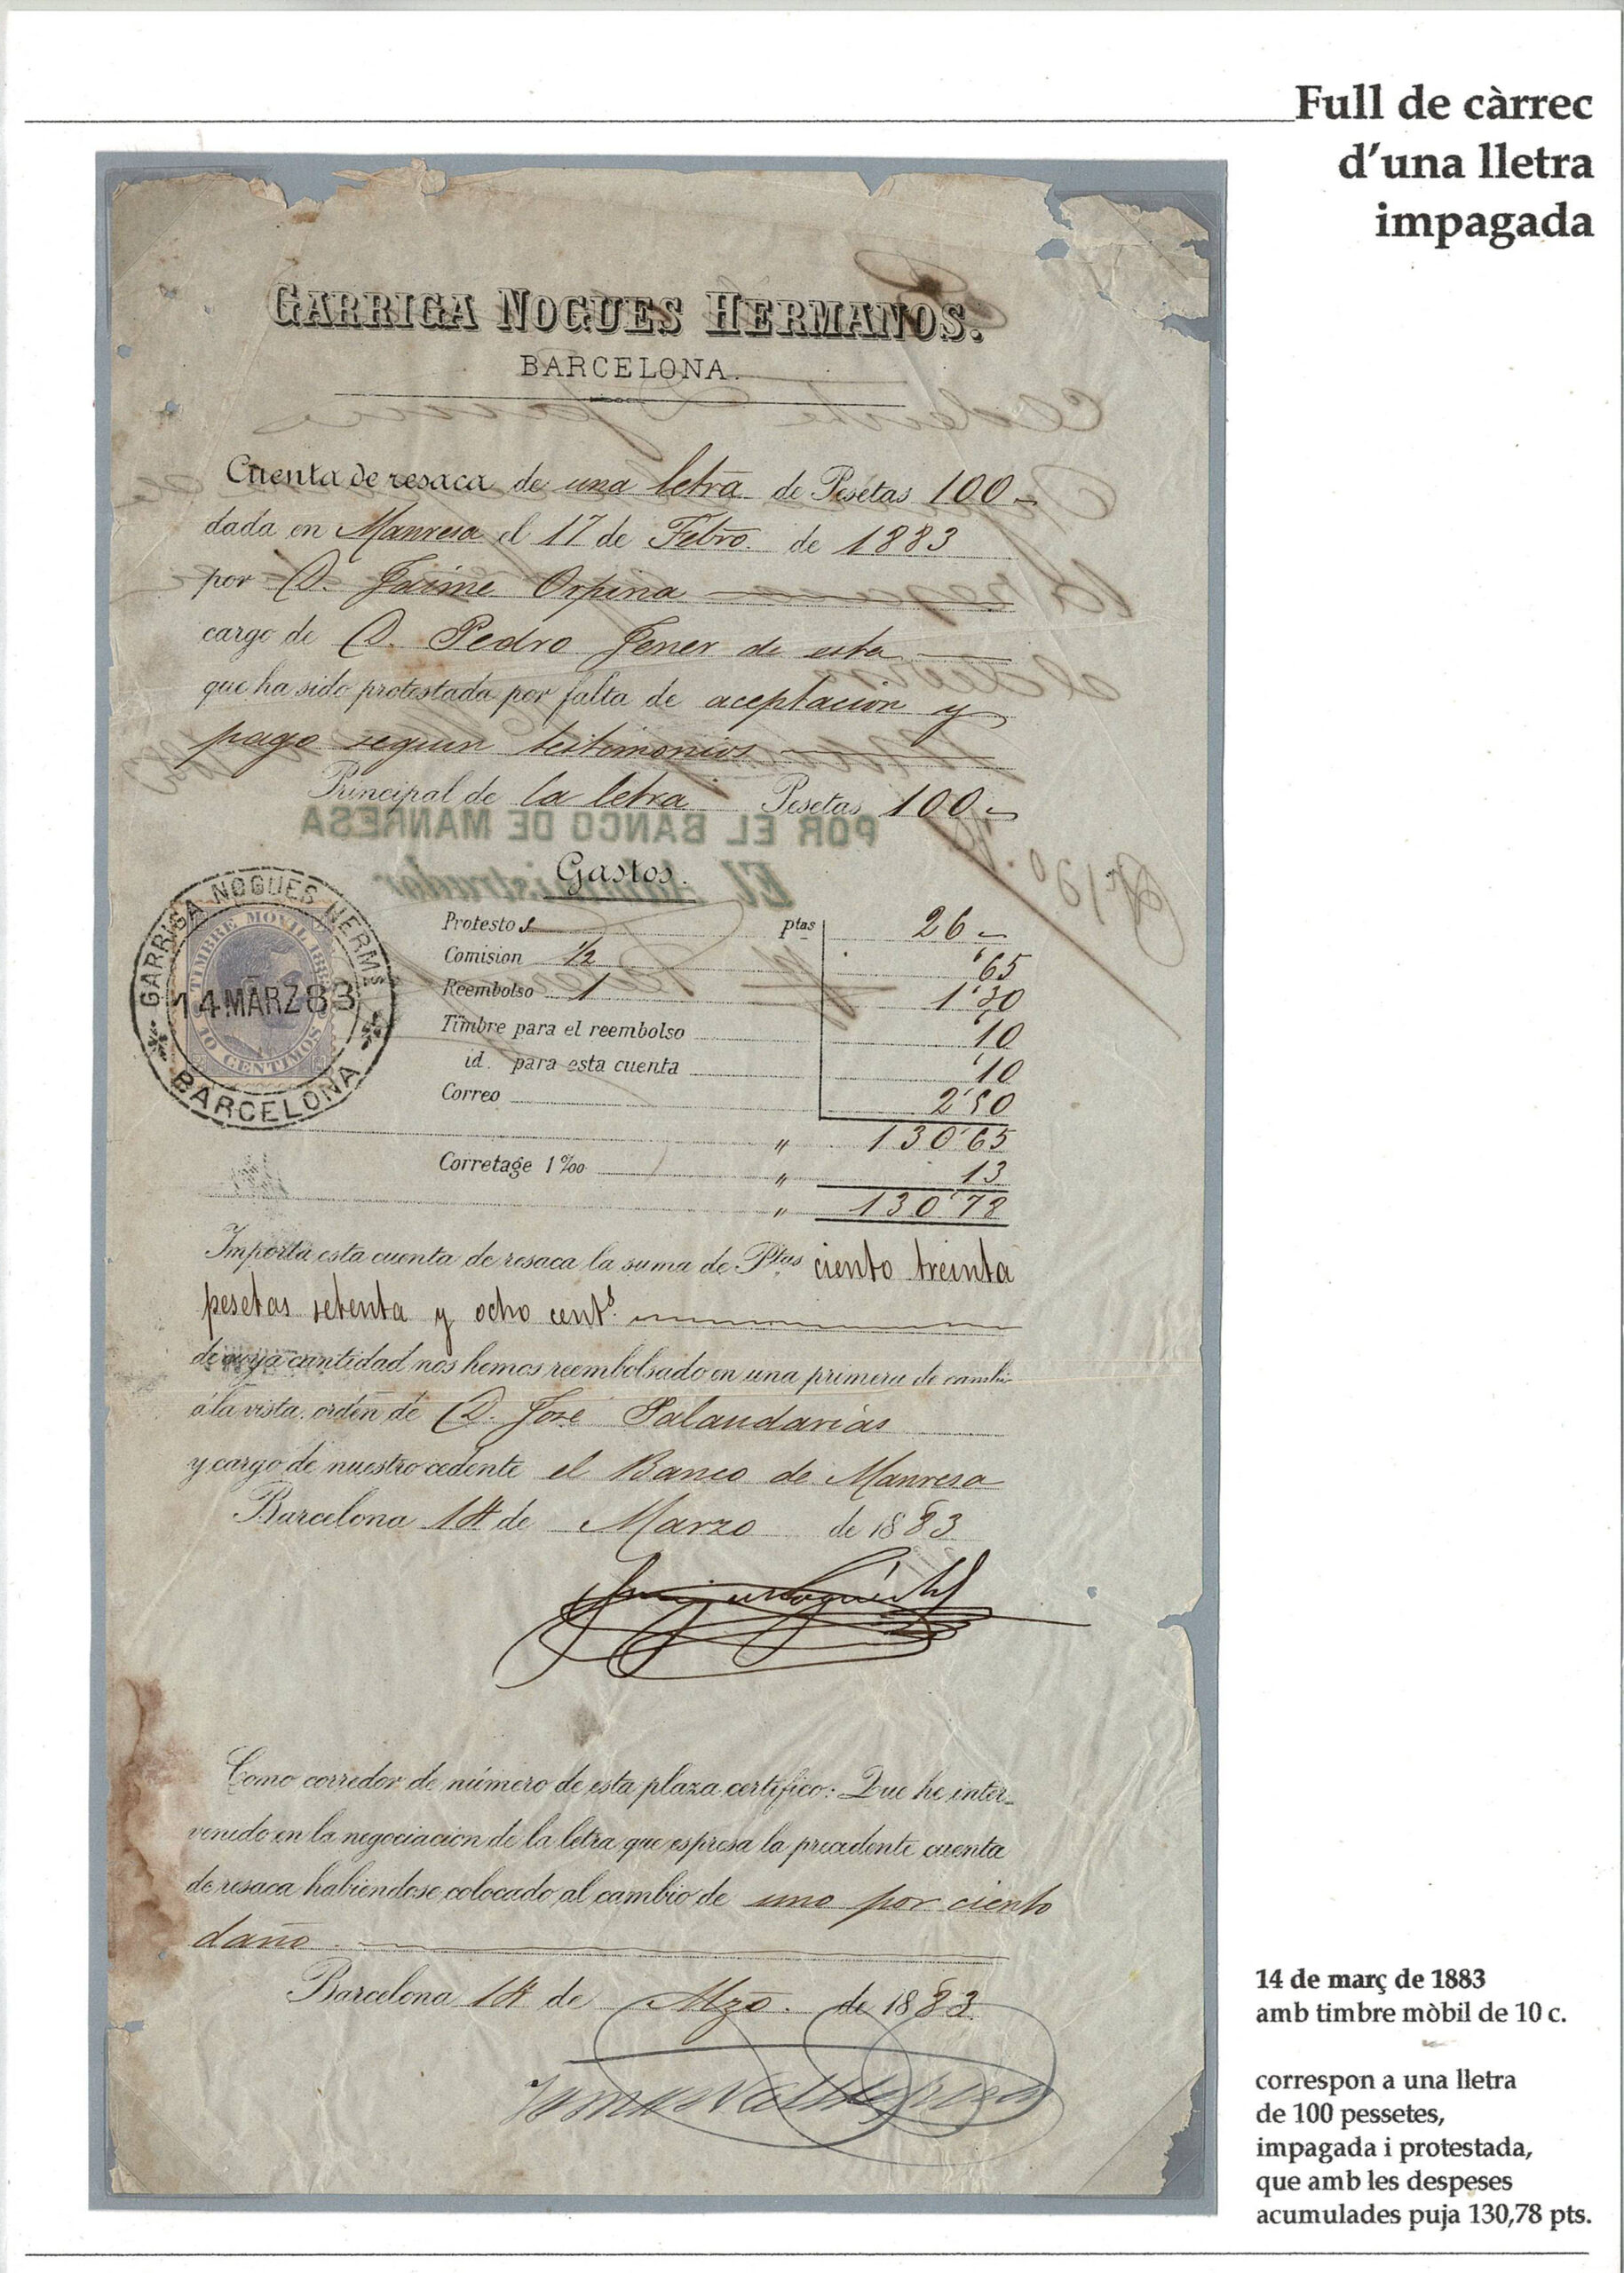 Full de càrrec
d'una lletra
impagada
GARRIGA NOGUES HERMANOS.
BARCELONA.
Cuenta de resaca de una letra de Pesetas 100
dada en Manresa el 17 de Febro. de 1883
por D. Jaime Orpina
cargo de D. Pedro Jener de esta
que ha sido protestada por falta de aceptacion y
pago segun testimonios
Principal de la letra Pesetas 100
POR EL BANCO DE MANRESA
El Administrador
Gastos.
Protesto s ptas 26
Comision 1/2 '65
Reembolso 1 1'30
Timbre para el reembolso '10
id. para esta cuenta '10
Correo 2'50
" 130'65
Corretage 1 ‰ " 13
" 130'78
GARRIGA NOGUES HERMS
TIMBRE MOVIL 188
14 MARZ 83
10 CENTIMOS
BARCELONA
Importa esta cuenta de resaca la suma de Ptas ciento treinta
pesetas setenta y ocho cents.
de cuya cantidad nos hemos reembolsado en una primera de cambio
á la vista, orden de D. José Palaudarias
y cargo de nuestro cedente el Banco de Manresa
Barcelona 14 de Marzo de 1883
Como corredor de número de esta plaza certifico: Que he inter-
venido en la negociacion de la letra que espresa la precedente cuenta
de resaca habiendose colocado al cambio de uno por ciento
daño.
Barcelona 14 de Mzo. de 1883
14 de març de 1883
amb timbre mòbil de 10 c.
correspon a una lletra
de 100 pessetes,
impagada i protestada,
que amb les despeses
acumulades puja 130,78 pts.